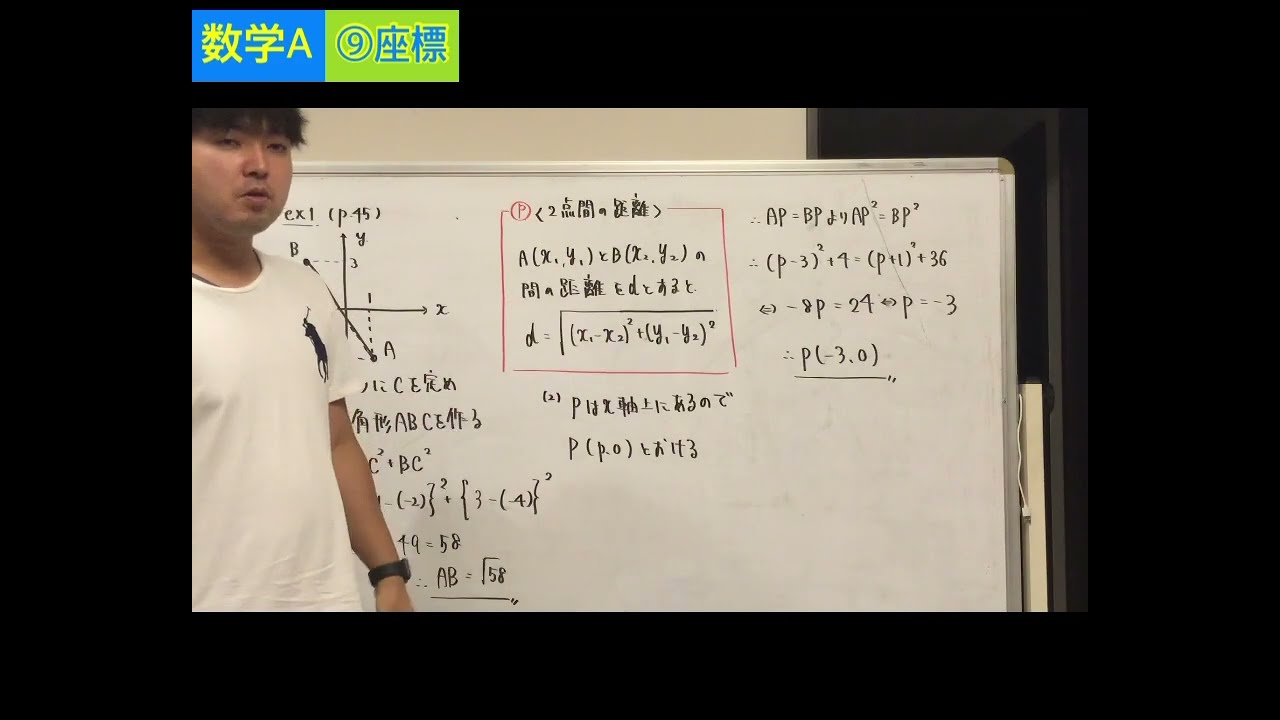 数学A ⑨座標
ex1 (p.45)
B
y
3
x
A
にCを定め
角形ABCを作る
C²+BC²
-(-2)}²+{3-(-4)}²
49=58
∴ AB=√58
Ⓟ〈2点間の距離〉
A(x₁,y₁)とB(x₂,y₂)の
間の距離をdとすると
d=√(x₁-x₂)²+(y₁-y₂)²
(2) Pはx軸上にあるので
P(p,0)とおける
∴ AP=BPよりAP²=BP²
∴ (p-3)²+4=(p+1)²+36
⇔ -8p=24⇔p=-3
∴ P(-3,0)